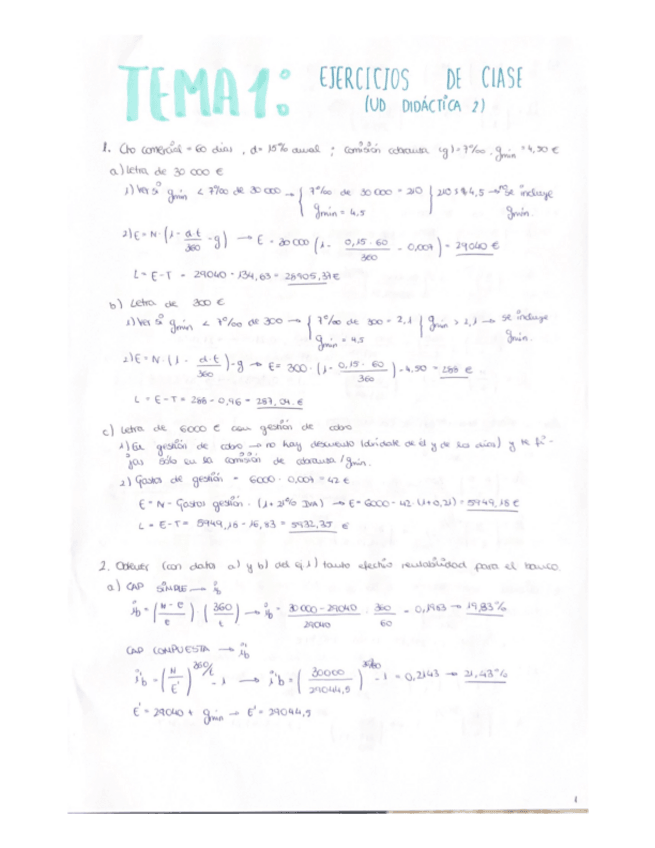 TEMA 1: EJERCICIOS DE CLASE
(UD DIDÁCTICA 2)
1. Cto comercial = 60 días, d = 15% anual ; comisión cobranza (g) = 7‰. gmin = 4,50 €
a) Letra de 30 000 €
1) Ver si gmin < 7‰ de 30 000 → { 7‰ de 30 000 = 210 } 210 > 4,5 → No se incluye
gmin = 4,5 gmin.
2) E = N · (1 - d·t/360 - g) → E = 30 000 (1 - 0,15 · 60/360 - 0,007) = 29040 €
L = E - T = 29040 - 134,63 = 28905,37 €
b) Letra de 300 €
1) Ver si gmin < 7‰ de 300 → { 7‰ de 300 = 2,1 } gmin > 2,1 → se incluye
gmin = 4,5 gmin.
2) E = N · (1 - d·t/360) - g → E = 300 · (1 - 0,15 · 60/360) - 4,50 = 288 €
L = E - T = 288 - 0,96 = 287,04 €
c) Letra de 6000 € con gestión de cobro
1) En gestión de cobro → no hay descuento (olvídate de él y de los días) y te fi-
jas sólo en la comisión de cobranza / gmin.
2) Gastos de gestión = 6000 · 0,007 = 42 €
E = N - Gastos gestión · (1 + 21% IVA) → E = 6000 - 42 · (1+0,21) = 5949,18 €
L = E - T = 5949,18 - 16,83 = 5932,35 €
2. Obtener (con datos a) y b) del ej 1) tanto efectivo rentabilidad para el banco.
a) CAP SIMPLE → ib
ib = (N - E/E) · (360/t) → ib = 30 000 - 29040/29040 · 360/60 = 0,1983 → 19,83%
CAP COMPUESTA → ib
i'b = (N/E')^360/t - 1 → i'b = (30000/29044,5)^360/60 - 1 = 0,2143 → 21,43%
E' = 29040 + gmin → E' = 29044,5
1